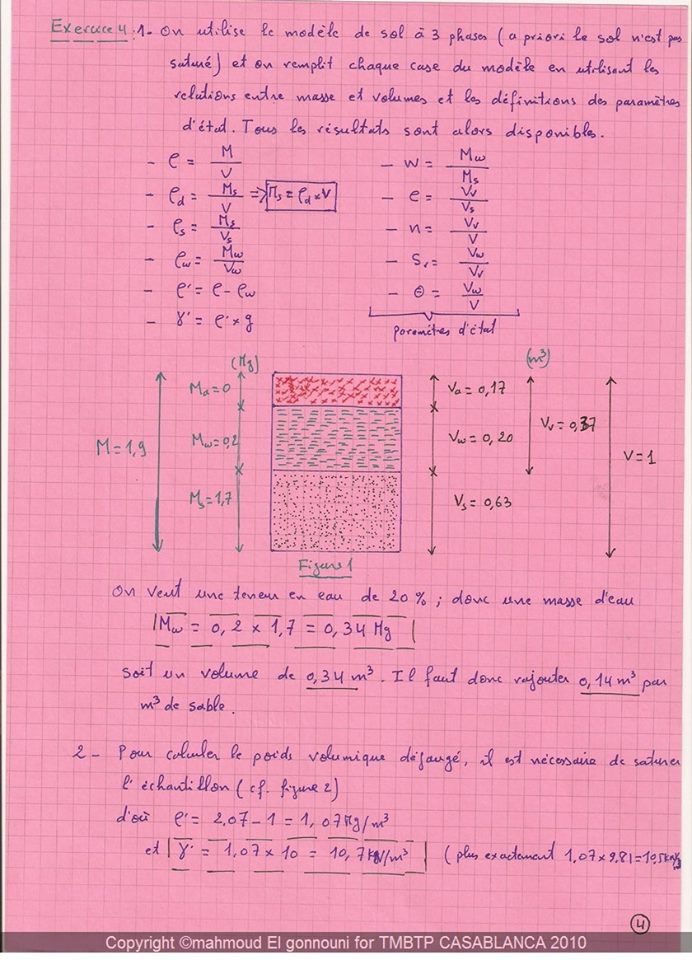 Exercice 4: 1- On utilise le modèle de sol à 3 phases (a priori le sol n'est pas
saturé) et on remplit chaque case du modèle en utilisant les
relations entre masse et volumes et les définitions des paramètres
d'état. Tous les résultats sont alors disponibles.
- ρ = M/V
- ρd = Ms/V => Ms = ρd × V
- ρs = Ms/Vs
- ρω = Mω/Vω
- ρ' = ρ - ρω
- γ' = ρ' × g
- W = Mω/Ms
- e = Vv/Vs
- n = Vv/V
- Sr = Vω/Vv
- θ = Vω/V
paramètres d'état
(Mg)
(m³)
Ma = 0
Va = 0,17
M = 1,9
Mω = 0,2
Vω = 0,20
Vv = 0,37
V = 1
Ms = 1,7
Vs = 0,63
Figure 1
On veut une teneur en eau de 20 % ; donc une masse d'eau
Mω = 0,2 × 1,7 = 0,34 Mg
soit un volume de 0,34 m³. Il faut donc rajouter 0,14 m³ par
m³ de sable.
2 - Pour calculer le poids volumique déjaugé, il est nécessaire de saturer
l'échantillon (cf. figure 2)
d'où ρ' = 2,07 - 1 = 1,07 Mg/m³
et γ' = 1,07 × 10 = 10,7 kN/m³ (plus exactement 1,07 × 9,81 = 10,5 kN/m³
4
Copyright ©mahmoud El gonnouni for TMBTP CASABLANCA 2010